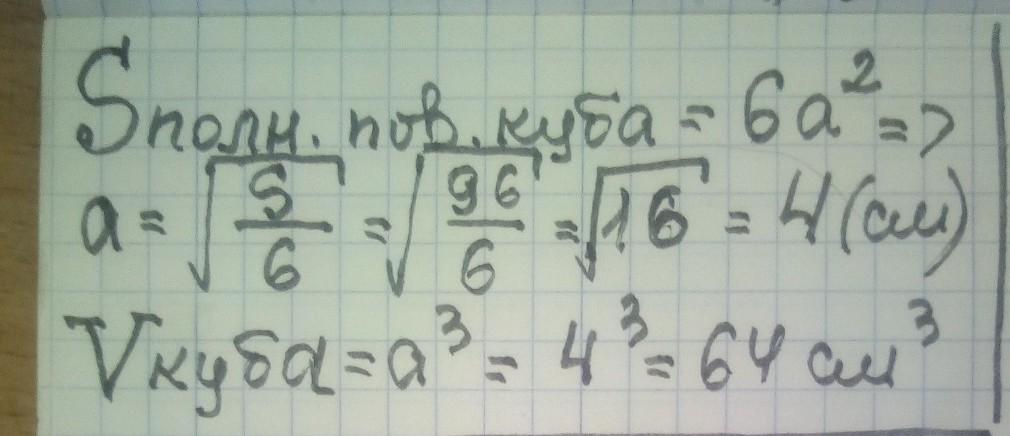 Sполн. пов. куба = 6a² =>
a = √(S/6) = √(96/6) = √16 = 4 (см)
Vкуба = a³ = 4³ = 64 см³